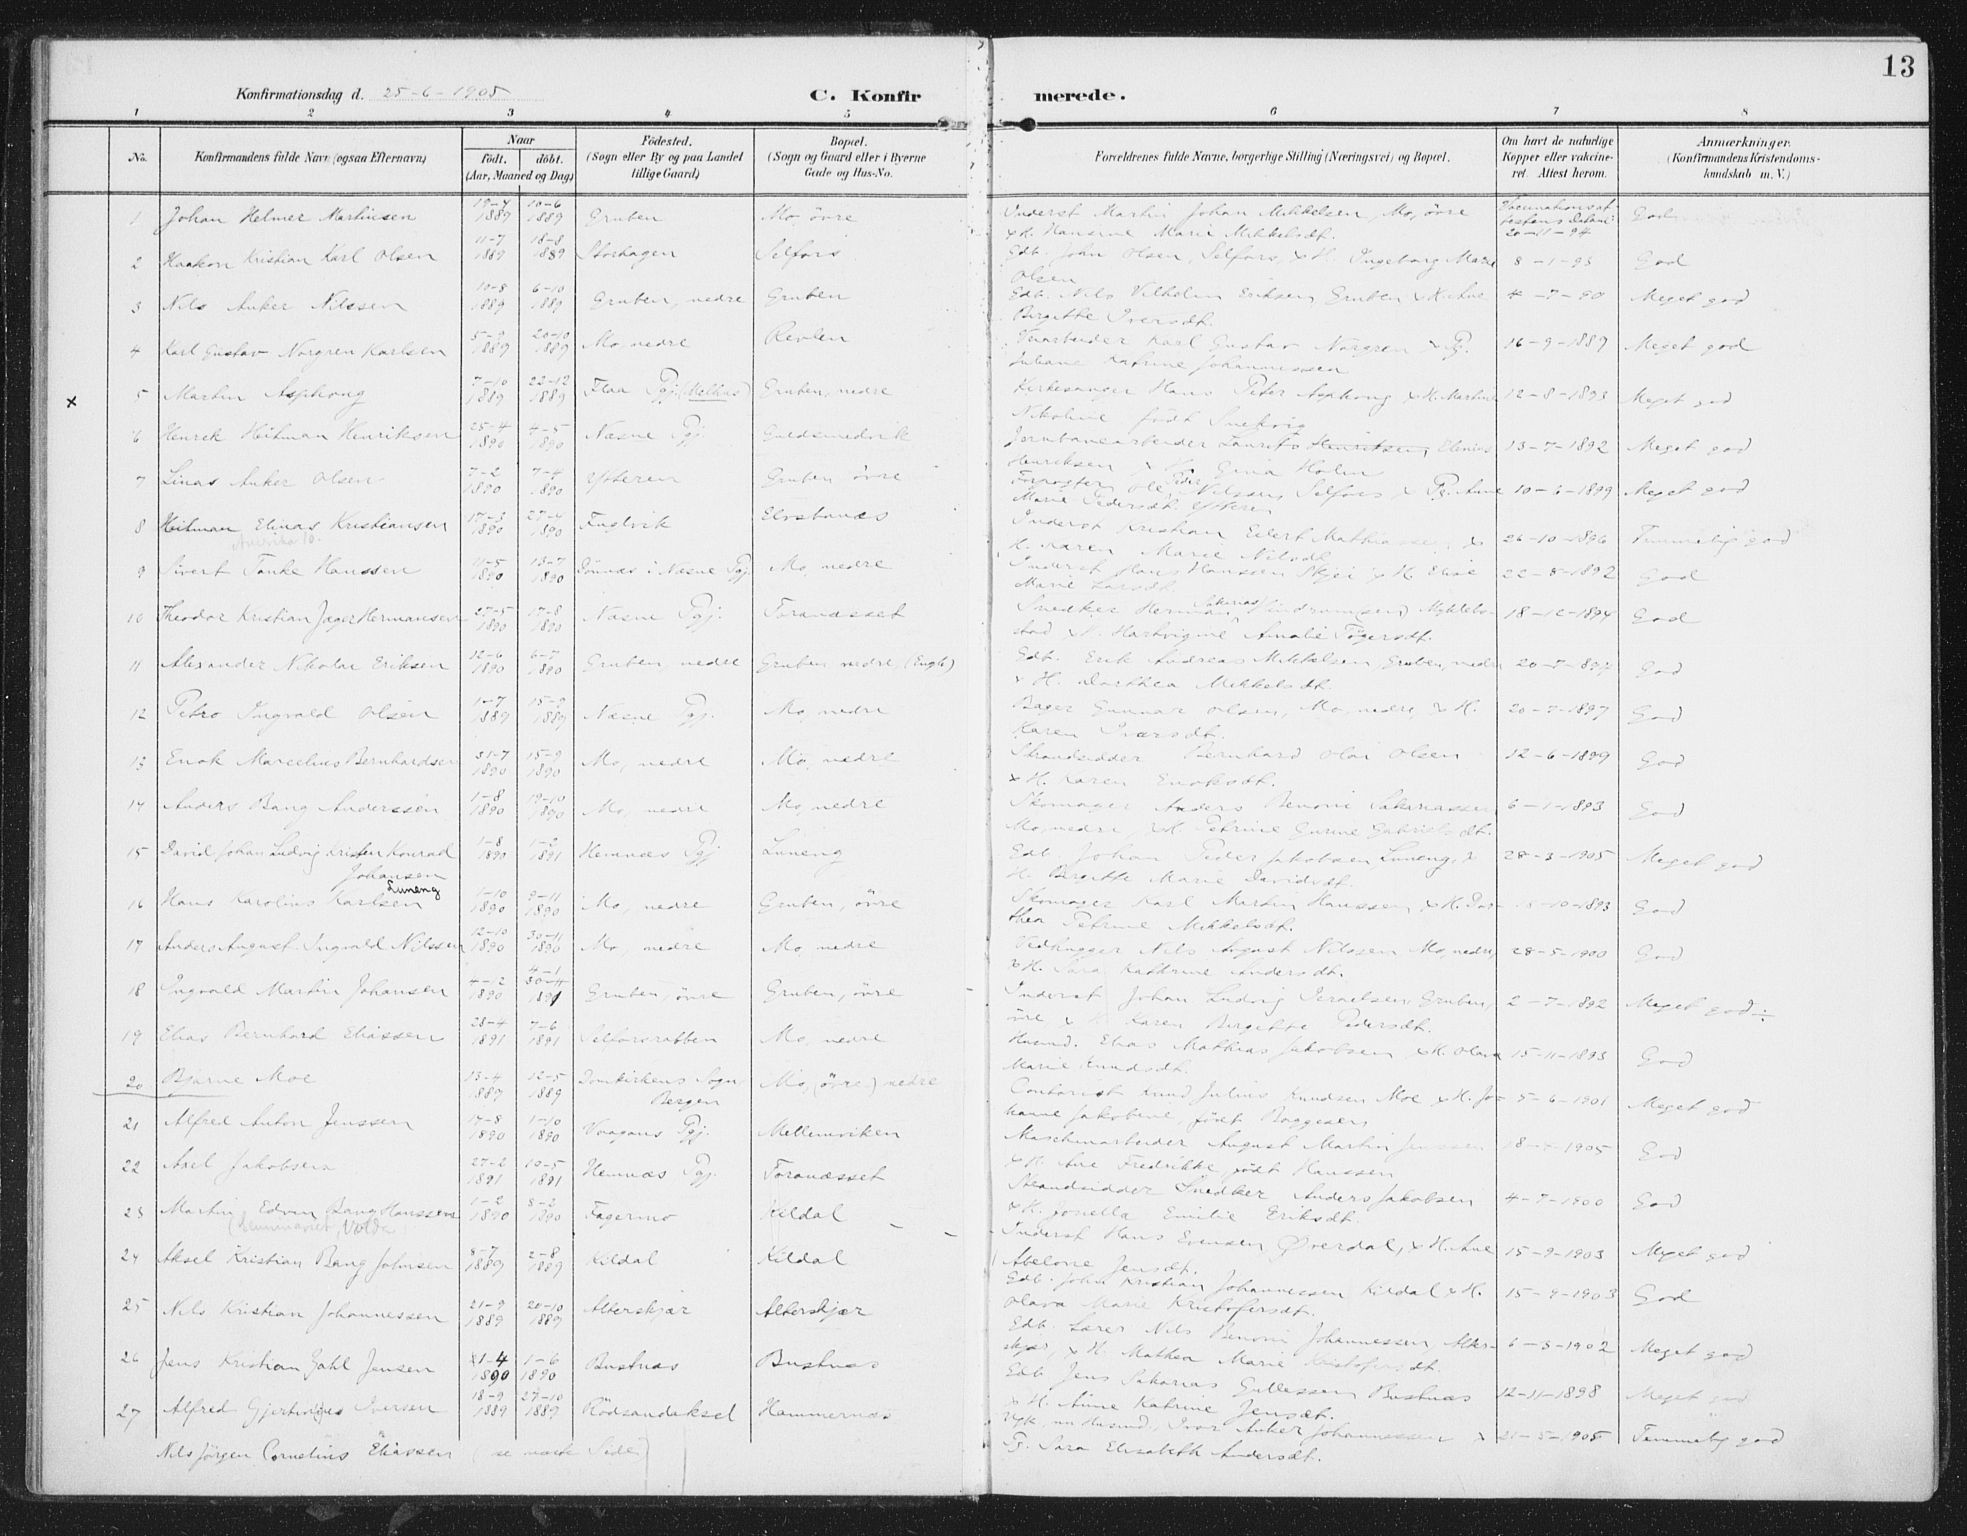 13
Konfirmationsdag d. 25-6-1905
C. Konfirmerede.
1 2 3 4 5 6 7 8
No.
Konfirmandens fulde Navn (ogsaa Efternavn)
Naar
födt. döbt.
(Aar, Maaned og Dag)
Födested.
(Sogn eller By og paa Landet
tillige Gaard)
Bopæl.
(Sogn og Gaard eller i Byerne
Gade og Hus-No.
Forældrenes fulde Navne, borgerlige Stilling (Næringsvei) og Bopæl.
Om havt de naturlige
Kopper eller vakcine-
ret. Attest herom.
Anmærkninger.
(Konfirmandens Kristendoms-
kundskab m. V.)
1 Johan Helmer Martinsen 19-4 1889 10-6 1889 Gruben Mo, övre Inderst Martin Johan Mikkelsen, Mo, övre 20-11-94 God
x H. Hansine Marie Mikkelsdt.
2 Haakon Kristian Karl Olsen 11-7 1889 18-8 1889 Storhagen Selfors Gdb. John Olsen, Selfors, x H. Ingeborg Marie 8-1-93 God
Olsen
3 Nils Anker Nilssen 10-8 1889 6-10 1889 Gruben, nedre Gruben Gdb. Nils Vilhelm Eriksen Gruben x H. Ane 4-7-90 Meget god
Birgitte Iversdt.
4 Karl Gustav Norgren Karlsen 5-9 1889 20-10 1889 Mo, nedre Revlen Karl Gustav Norgren x Pg. 16-9-1889 Meget god
Juliane Katrine Johannessen
x 5 Martin Asphoug 7-10 1889 22-12 1889 Flaa Pgj. (Melhus) Gruben, nedre Kirkesanger Hans Peter Asphoug x H. Martine 12-8-1893 Meget god
Nikoline födt
6 Henrik Heitman Henriksen 25-4 1890 4-5 1890 Næsne Pgj. Guldsmedvik Jernbanearbeider Laurits Henriksen 13-7-1892 Meget god
Henriksen x H. Gina Holm
7 Linas Anker Olsen 7-2 1890 7-4 1890 Ytteren Gruben övre Ole Peder Nilssen, Selfors x Pg. Anne 10-6-1899 Meget god
Marie Pedersdt. Ytteren
8 Heitman Elinas Kristiansen 17-3 1890 27-4 1890 Fuglvik Inderst Kristian Edert Mathiassen x 26-10-1896 Temmelig god
H. Karen Marie Nilsdt.
9 Sivert Tonke Hanssen 11-5 1890 13-7 1890 Dönnæs i Næsne Pgj. Mo, nedre Inderst Hans Hanssen x H. Elise 22-8-1892 God
Marie Larsdt.
10 Theodor Kristian Jæger Hermansen 27-5 1890 17-8 1890 Næsne Pgj. Toranæsset Snedker Herman Sakarias 18-12-1894 God
x H. Hartvigine Amalie
11 Alexander Nikolai Eriksen 12-6 1890 6-7 1890 Gruben, nedre Gruben nedre, Gdb. Erik Andreas Mikkelsen, Gruben, nedre 20-7-1894 God
x H. Dorthea Mikkelsdt.
12 Petro Ingvald Olsen 1-7 1889 15-9 1889 Næsne Pgj. Mo, nedre Bager Gunnar Olsen, Mo, nedre, x H. 20-7-1897 God
Karen Iversdt.
13 Enok Marcelius Bernhardsen 31-7 1890 15-9 1890 Mo, nedre Mo, nedre Strandsidder Bernhard Olai Olsen 12-6-1899 God
x H. Karen Enoksdt.
14 Anders Bang Anderssen 1-8 1890 19-10 1890 Mo, nedre Mo, nedre Skomager Anders Benoni Sakariassen 6-1-1893 God
Mo, nedre, x H. Petrine Gurine Gabrielsdt.
15 David Johan Ludvig Kristen Konrad 1-8 1890 1-2 1891 Hemnæs Pgj Luneng Gdb. Johan Peder Jakobsen Luneng, x 28-3-1905 Meget god
Johansen Luneng H. Birgitte Marie Davidsdt.
16 Hans Karolius Karlsen 1-10 1890 9-11 1890 Mo, nedre Gruben, övre Skomager Karl Martin Hanssen, x H. Dor- 18-10-1893 God
thea Petrine Mikkelsdt.
17 Anders August Ingvald Nilssen 12-10 1890 30-11 1890 Mo, nedre Mo, nedre Vedhugger Nils August Nilssen Mo, nedre, 28-5-1900 God
x H. Sara Kathrine Andersdt.
18 Ingvald Martin Johansen 4-12 1890 4-1 1891 Gruben, övre Gruben, övre Inderst Johan Ludvig Israelsen, Gruben, 2-7-1892 Meget god
övre x H. Karen Birgitte Pedersdt.
19 Elias Bernhard Eliassen 28-4 1891 7-6 1891 Selforsratben Mo, nedre Husmd. Elias Mathias Jakobsen x H. Olava 15-11-1893 God
Marie Knudsdt.
20 Bjarne Moe 13-4 1889 12-5 1889 Domkirkens Sogn, Bergen Mo, (övre) nedre Contorist Knud Julius Knudsen Moe x H. Jo- 5-6-1901 Meget god
hanne Jakobine, födt
21 Alfred Anton Jenssen 17-8 1890 1-10 1890 Vaagans Pgj. Mellemviken Maskinarbeider August Martin Jenssen 18-4-1905 God
x H. Ane Fredrikke, födt Hanssen
22 Axel Jakobsen 27-2 1891 10-5 1891 Hemnæs Pgj. Toranæsset Strandsidder Snedker Anders Jakobsen 4-7-1900 God
x H. Jonella Emilie Eriksdt.
23 Martin Edvin Bang Hanssen 1-2 1890 8-2 1890 Fagermo Kildal Inderst Hans Evensen Överdal, x H. Ane 15-9-1903 Meget god
(Seminariet, Volda) Abelone Jensdt.
24 Aksel Kristian Bang Johnsen 8-7 1889 2-8 1889 Kildal Kildal Gdb. John Kristian Johannessen Kildal x H. 15-9-1903 God
Olava Marie Kristofersdt.
25 Nils Kristian Johannessen 21-9 1889 20-10 1889 Alterskjær Alterskjær Gdb. Lærer Nils Benoni Johannessen, Alter- 6-3-1902 Meget god
skjær, x H. Mathea Marie Kristofersdt.
26 Jens Kristian Gahl Jensen 1-4 1890 1-6 1890 Bustnæs Bustnæs Gdb Jens Sakarias Gullessen Bustnæs 12-11-1898 Meget god
x H. Anne Katrine Jensdt.
27 Alfred Iversen 18-9 1889 27-10 1889 Rödsandaksel Hammernæs Ugk. nu Husmd. Ivar Anker Johannessen x 21-5-1905 Temmelig god
Pg. Sara Elisabeth Andersdt.
Nils Jörgen Cornelius Eliassen (se næste Side)